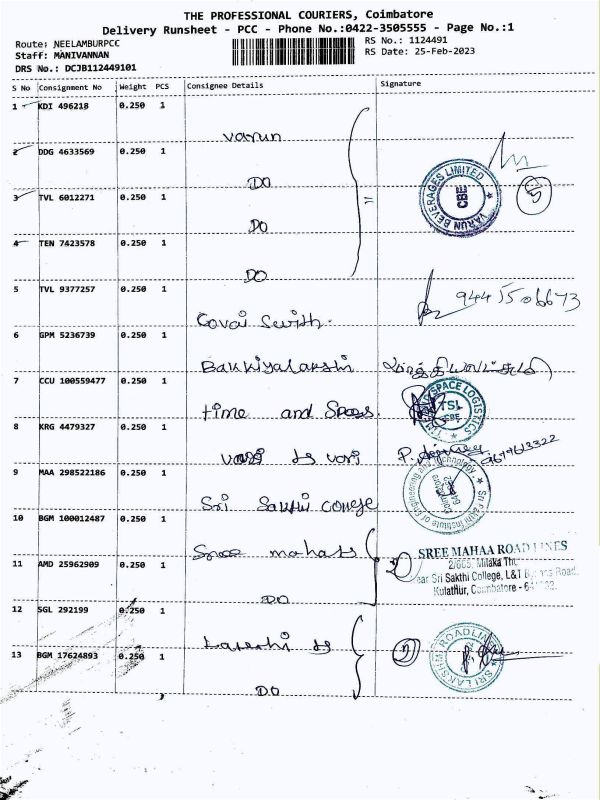 THE PROFESSIONAL COURIERS, Coimbatore
Delivery Runsheet - PCC - Phone No.:0422-3505555 - Page No.:1
Route: NEELAMBURPCC
RS No.: 1124491
Staff: MANIVANNAN
RS Date: 25-Feb-2023
DRS No.: DCJB112449101
S No Consignment No Weight PCS Consignee Details Signature
1 KDI 496218 0.250 1
Varun
2 DDG 4633569 0.250 1
DO
VARUN BEVERAGES LIMITED
CBE
3 TVL 6012271 0.250 1
DO
4 TEN 7423578 0.250 1
DO
5 TVL 9377257 0.250 1
Covai
9445506673
6 GPM 5236739 0.250 1
Bakkiyalakshi
7 CCU 100559477 0.250 1
time and Spess.
SPACE LOGISTICS
TSL
CBE
8 KRG 4479327 0.250 1
9 MAA 298522186 0.250 1
Sri Sakthi College
Sri Sakthi Institute of Engineering and Technology
Coimbatore
10 BGM 100012487 0.250 1
Sree
SREE MAHAA ROAD LINES
11 AMD 25962909 0.250 1
DO
Sri Sakthi College, L&T
Kulathur, Coimbatore
12 SGL 292199 0.250 1
13 BGM 17624893 0.250 1
DO
SRI LAKSHMI ROADLINES